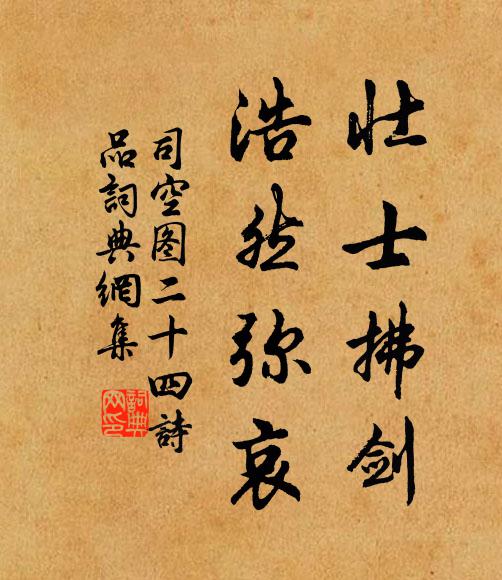 壮士拂剑
浩然弥哀
司空图二十四詩
品詞典網集
詞典
网印